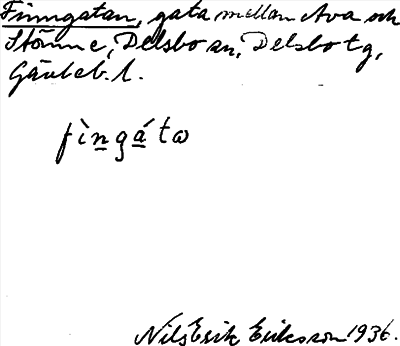 Finngatan, gata mellan Ava och
Stömne, Delsbo sn, Delsbo tg,
Gävleb. l.
fìngátω
Nils Erik Eriksson 1936.